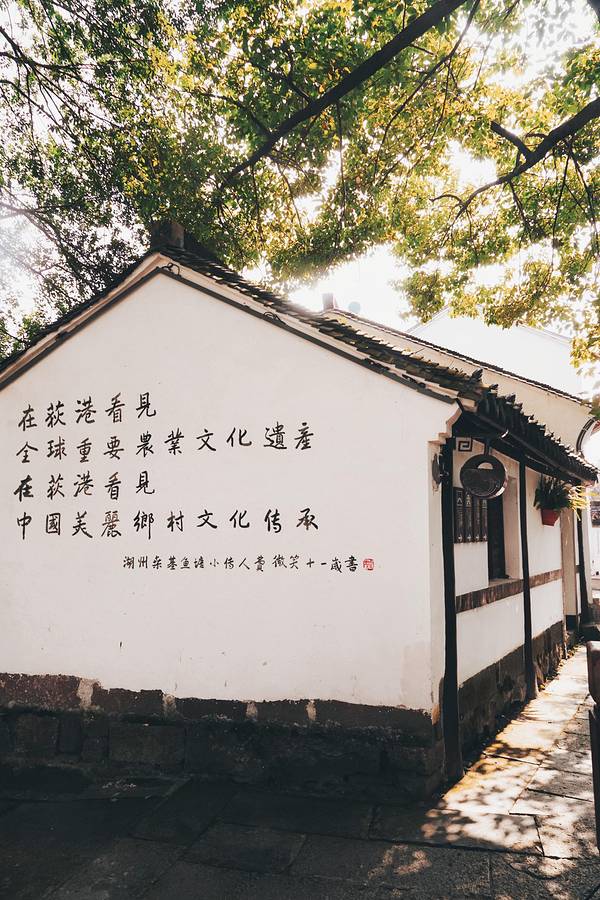 在荻港看見
全球重要農業文化遺產
在荻港看見
中國美麗鄉村文化传承
湖州桑基鱼塘小传人費微笑十一歲書